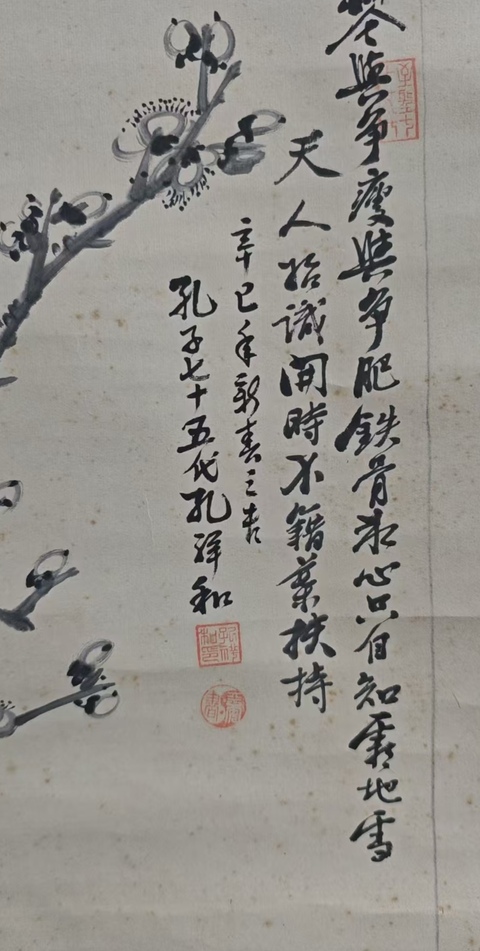 與争瘦與争肥鉄骨冰心只自知霜地雪
天人始識開時不籍葉扶持
辛巳年新春之吉
孔子七十五代孔祥和
孔祥和印